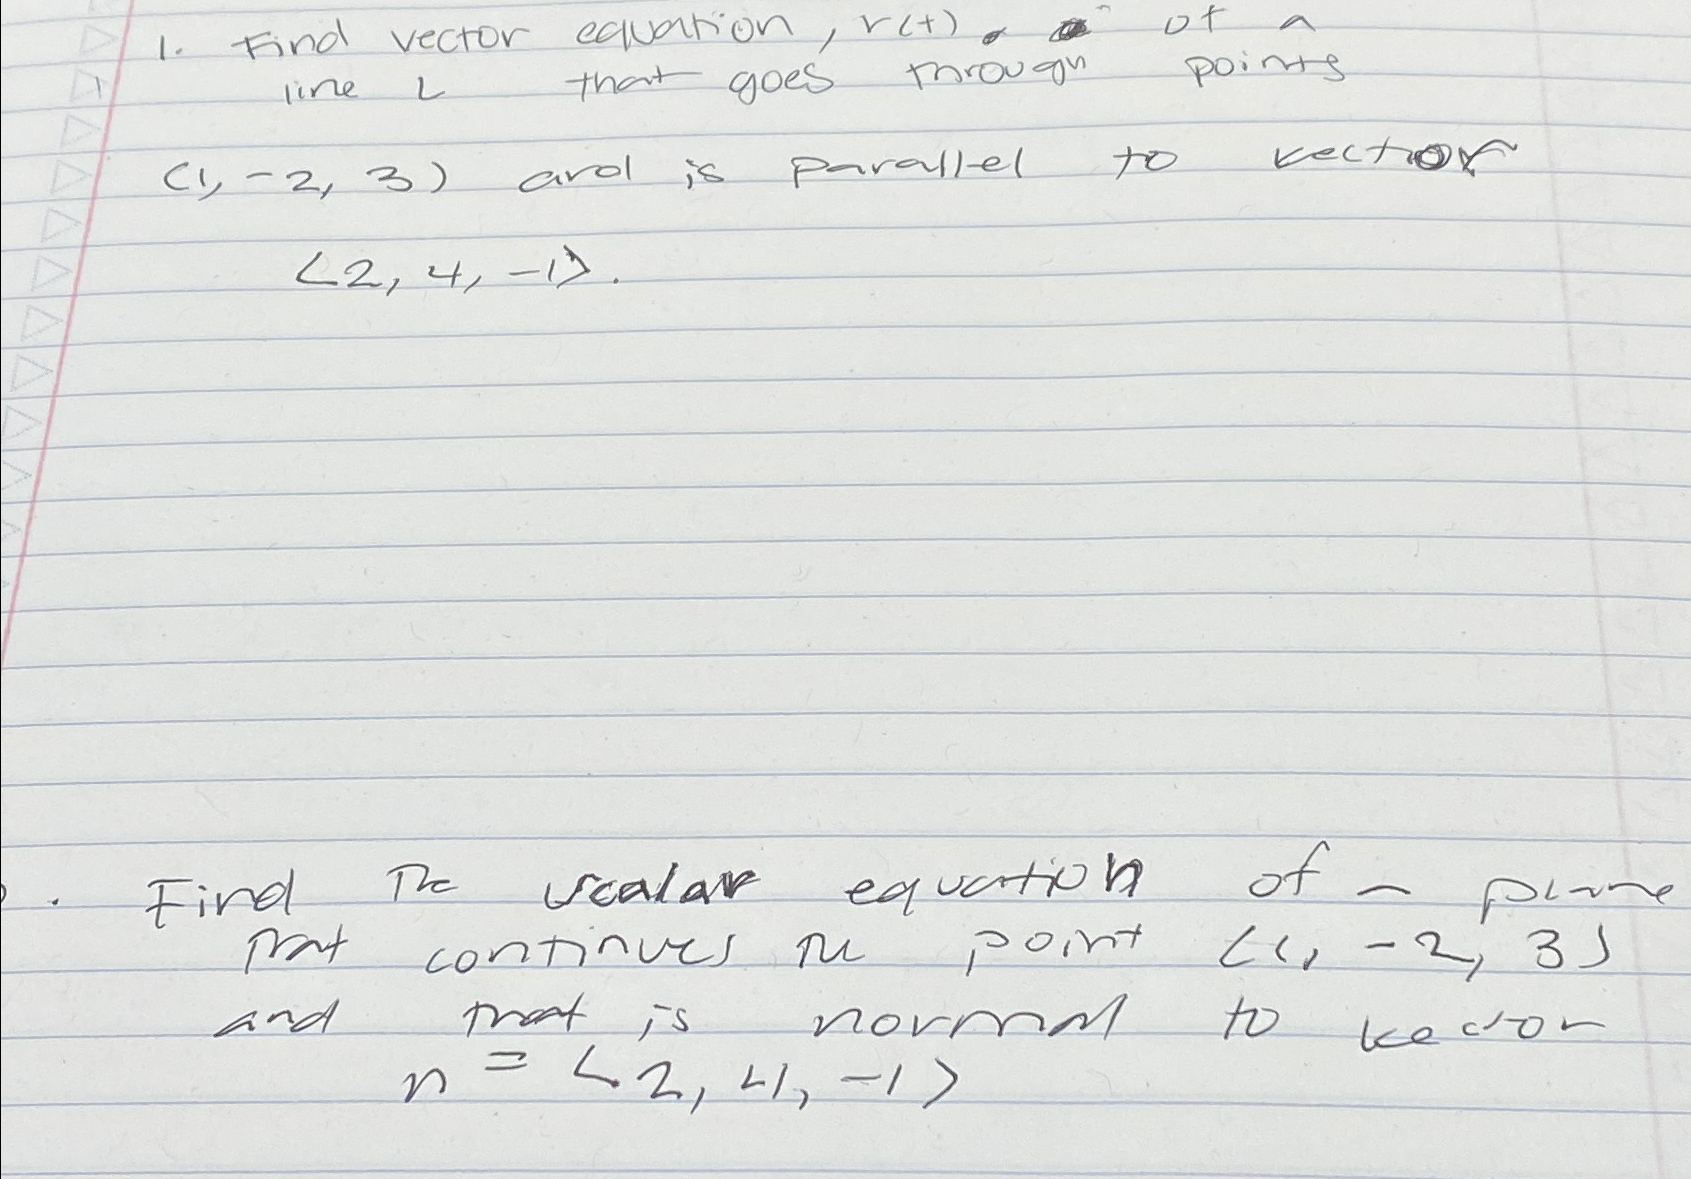 1. Find vector equation, r(t) of a
line L that goes through points
(1, -2, 3) and is parallel to vector
<2, 4, -1>.
. Find the scalar equation of a plane
that continues the point (1, -2, 3)
and that is normal to vector
n = <2, 4, -1>